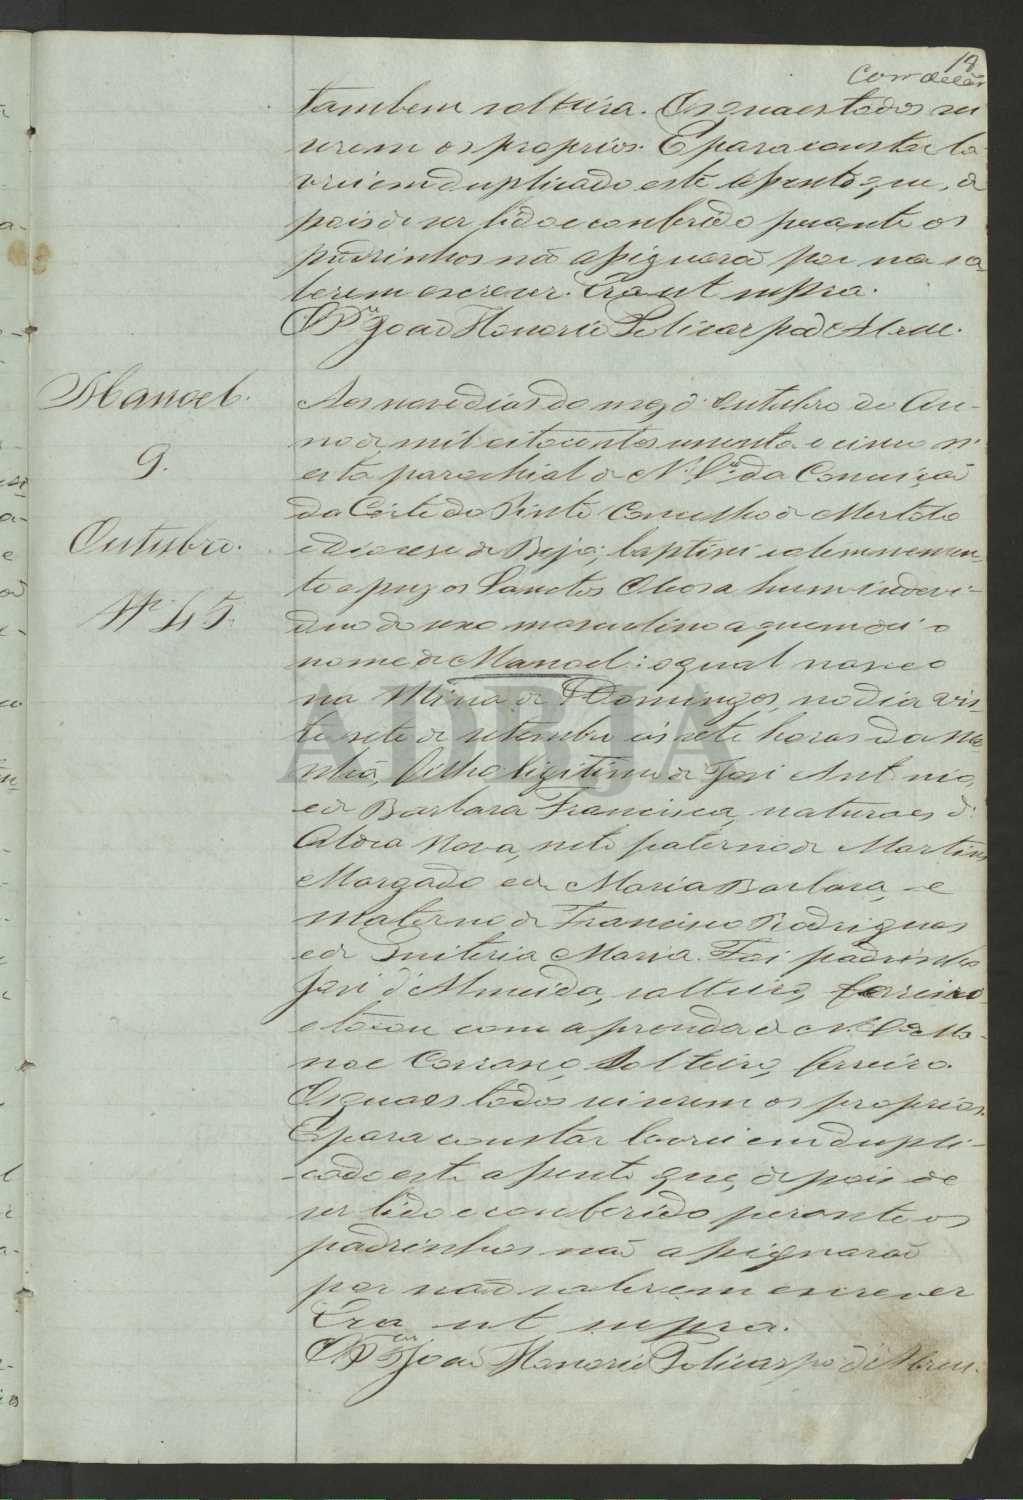 18
tambem solteira. Os quaes todos sei
serem os proprios. E para constar la-
vrei em duplicado este assento que, de
pois de ser lido e conferido perante os
padrinhos não assignarão por não sa-
berem escrever. Era ut supra.
O P.or João Honorio Policarpo d'Abreu.
Manoel.
9.
Outubro.
Nº 45.
Aos nove dias do mez d' Outubro do An-
no de mil oitocentos sessenta e cinco n'
esta parochial de N. Sr.a da Conceição
da Corte do Pinto Concelho de Mertola
e Diocese de Beja; baptisei solemnemen-
te e puz os Sanctos Oleos a hum indevi-
duo do sexo masculino a quem dei o
nome de Manoel: o qual nasceo
na Mina de S. Domingos, no dia vin-
te sete de setembro ás sete horas da ma-
nhã, filho ligitimo de José Antonio,
e de Barbara Francisca, naturaes d'
Aldea Nova, neto paterno de Martins
Morgado e de Maria Barbara, e
materno de Francisco Rodrigues
e de Quiteria Maria. Foi padrinho
José d'Almeida, solteiro, ferreiro
e tocou com a prenda de N. Sr.a Ma-
noel Corrano, Solteiro, ferreiro.
Os quaes todos sei serem os proprios.
E para constar lavrei em dupli-
cado este assento que, depois de
ser lido e conferido perante os
padrinhos não assignarão
por não saberem escrever
Era ut supra.
O P.or João Honorio Policarpo d'Abreu.
ADBJA